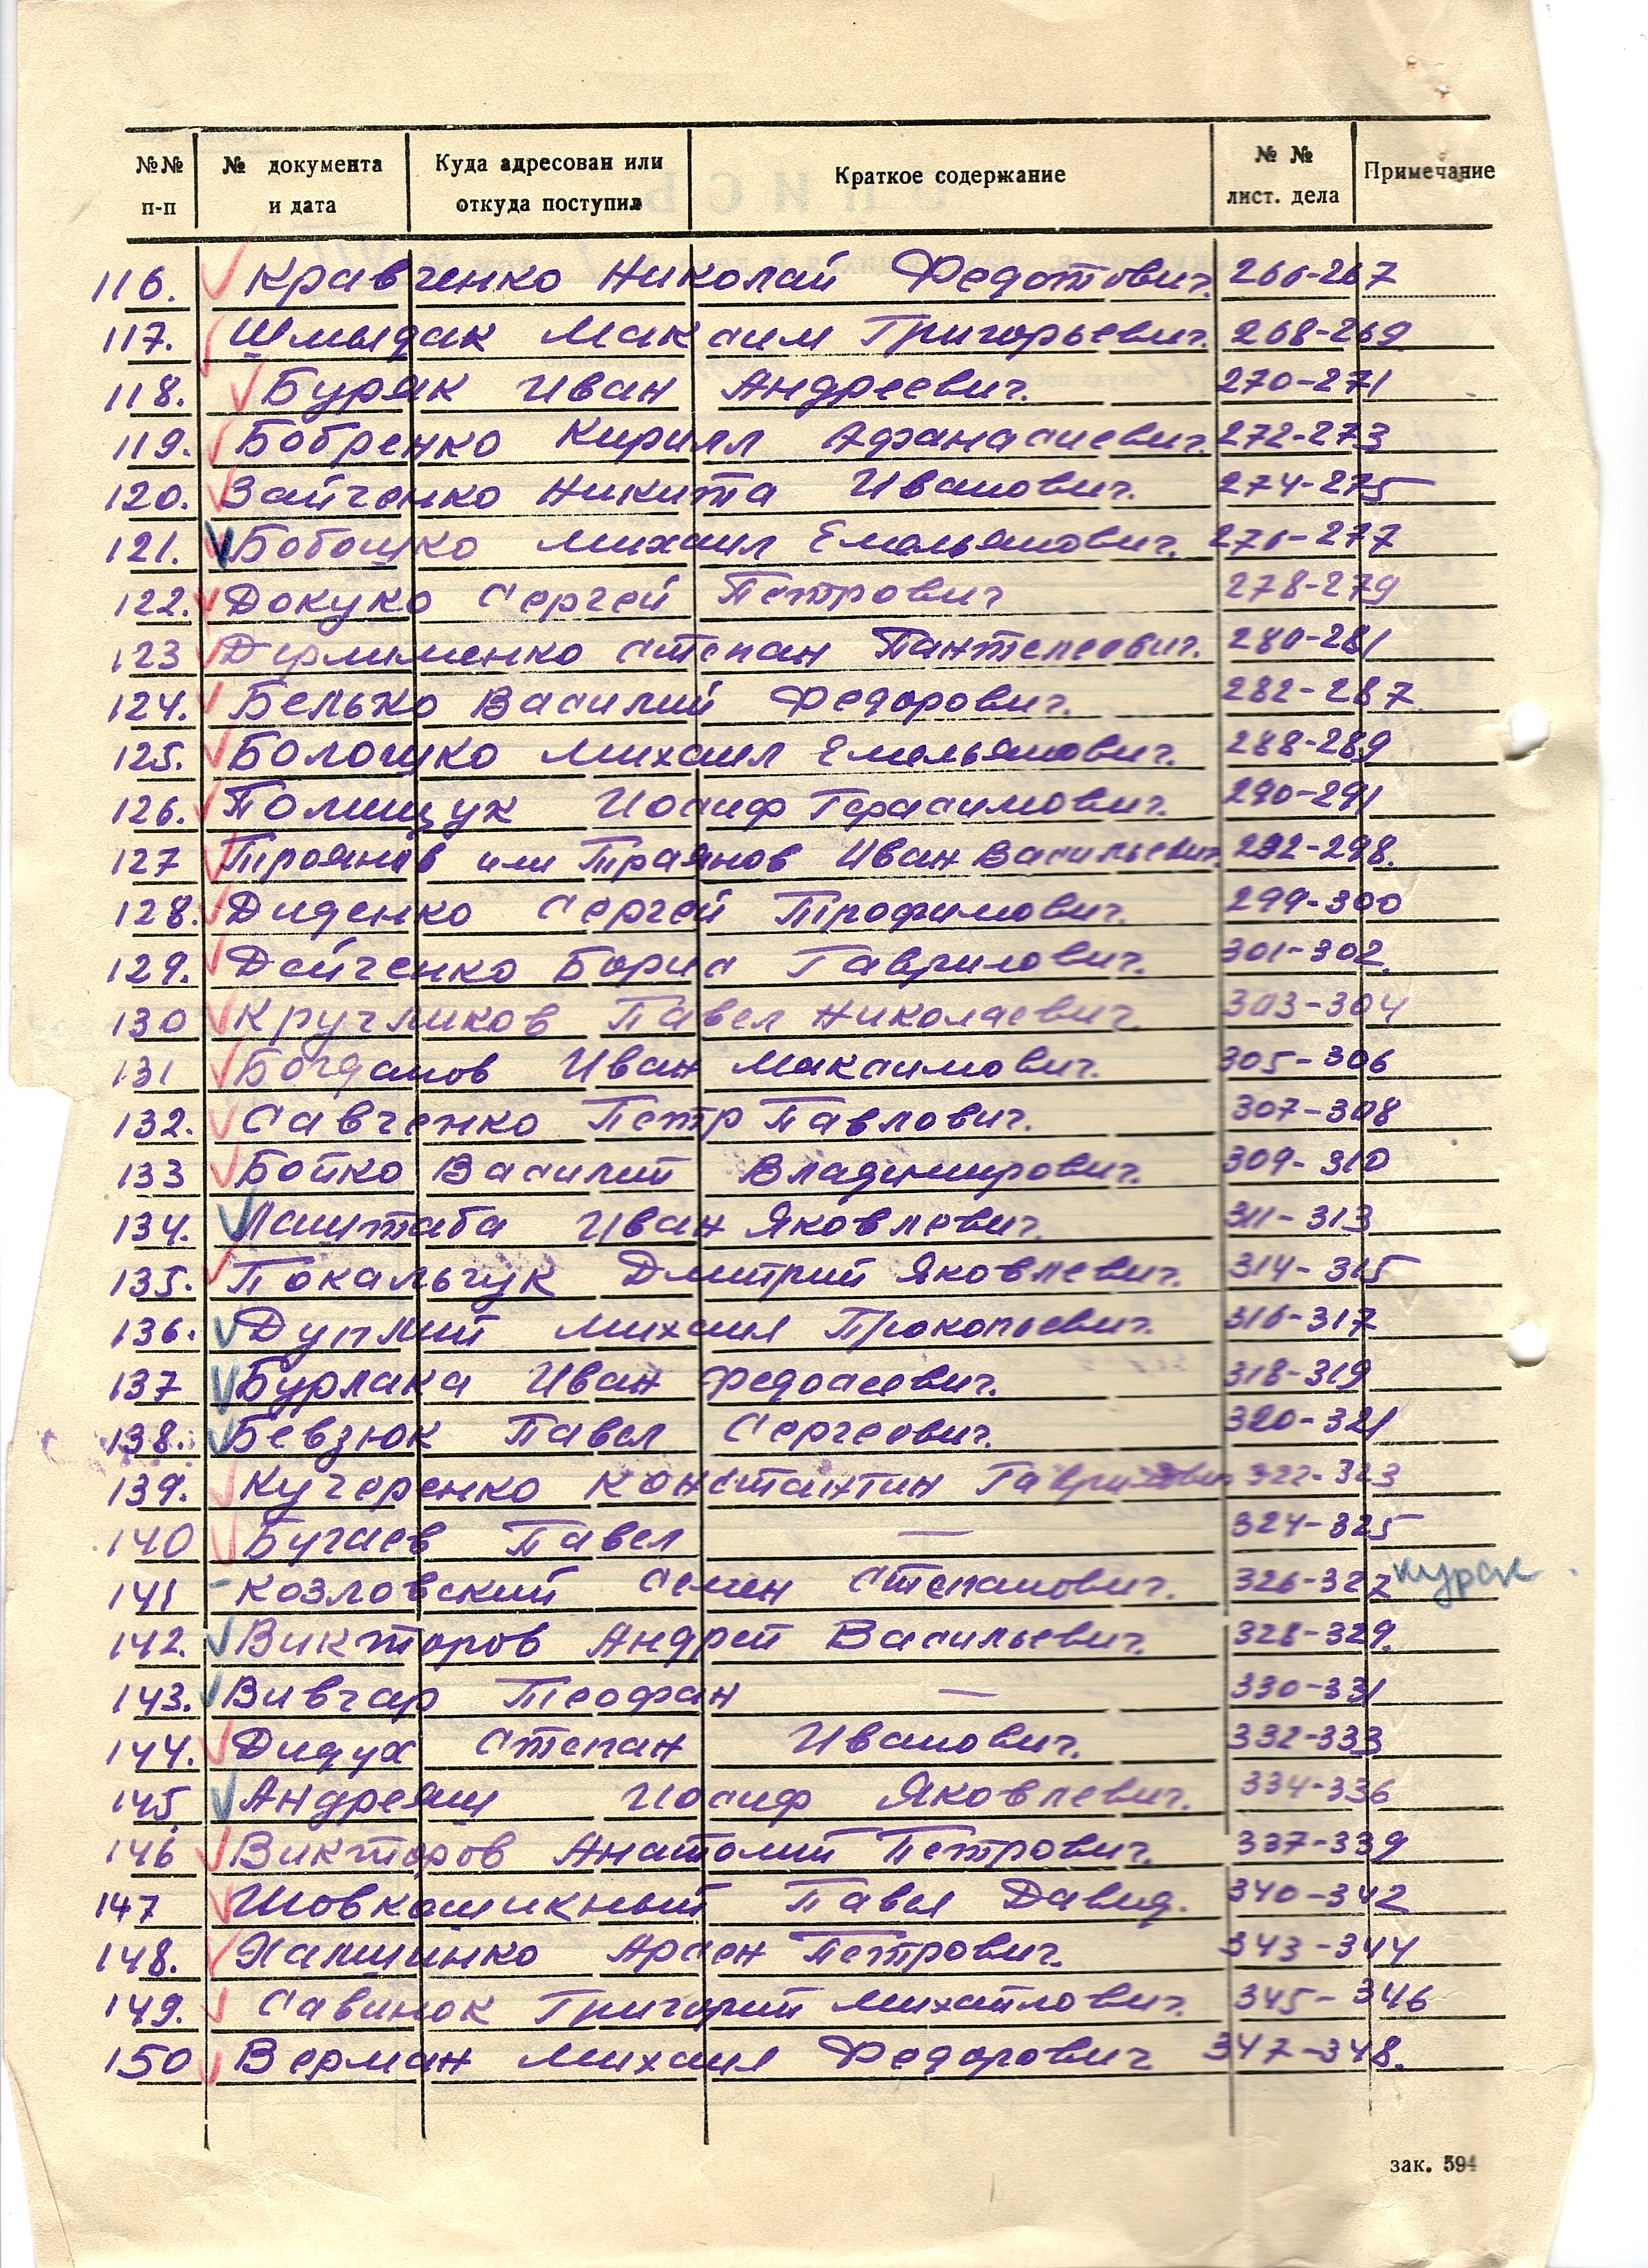 №№ п-п № документа и дата Куда адресован или откуда поступил Краткое содержание № № лист. дела Примечание
116. Кравченко Николай Федотович. 266-267
117. Шмыдак Максим Григорьевич. 268-269
118. Буряк Иван Андреевич. 270-271
119. Бобренко Кирилл Афанасиевич. 272-273
120. Зайченко Никита Иванович. 274-275
121. Бобошко Михаил Емельянович. 276-277
122. Докуко Сергей Петрович 278-279
123 Степан Пантелеевич. 280-281
124. Белько Василий Федорович. 282-287
125. Болошко Михаил Емельянович. 288-289
126. Полищук Иосиф Герасимович. 290-291
127 Троянов или Траянов Иван Васильевич. 292-298.
128. Диденко Сергей Трофимович. 299-300
129. Дейченко Борис Гаврилович. 301-302.
130 Кручликов Павел Николаевич. 303-304
131 Богданов Иван Максимович. 305-306
132. Савченко Петр Павлович. 307-308
133 Бойко Василий Владимирович. 309-310
134. Лаштаба Иван Яковлевич. 311-313
135. Покальчук Дмитрий Яковлевич. 314-315
136. Дуплий Михаил Прокопьевич. 316-317
137 Бурлака Иван Федосеевич. 318-319
138. Бевзюк Павел Сергеевич. 320-321
139. Кучеренко Константин Гаврилович 322-323
140 Бугаев Павел — 324-325
141 - Козловский Семен Степанович. 326-327 Курск.
142. Викторов Андрей Васильевич. 328-329.
143. Вивчар Теофан — 330-331
144. Дидух Степан Иванович. 332-333
145. Андреяш Иосиф Яковлевич. 334-336
146 Викторов Анатолий Петрович. 337-339
147 Павел Давид. 340-342
148. Арсен Петрович. 343-344
149. Савинок Григорий Михайлович. 345-346
150 Верман Михаил Федорович 347-348.
зак. 594